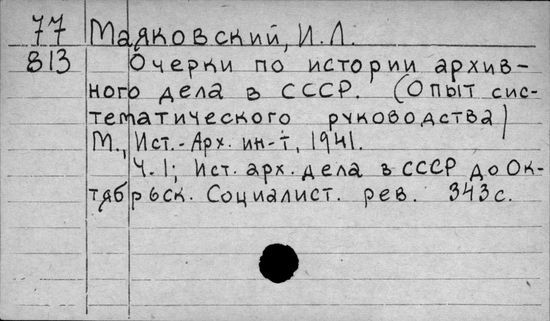 77 Маяковский, И.Л.
813 Очерки по истории архив-
ного дела в СССР. (Опыт сис-
тематического руководства)
М., Ист.-Арх. ин-т, 1941.
Ч.1; Ист. арх. дела в СССР до Ок-
тябрьск. Социалист. рев. 343с.